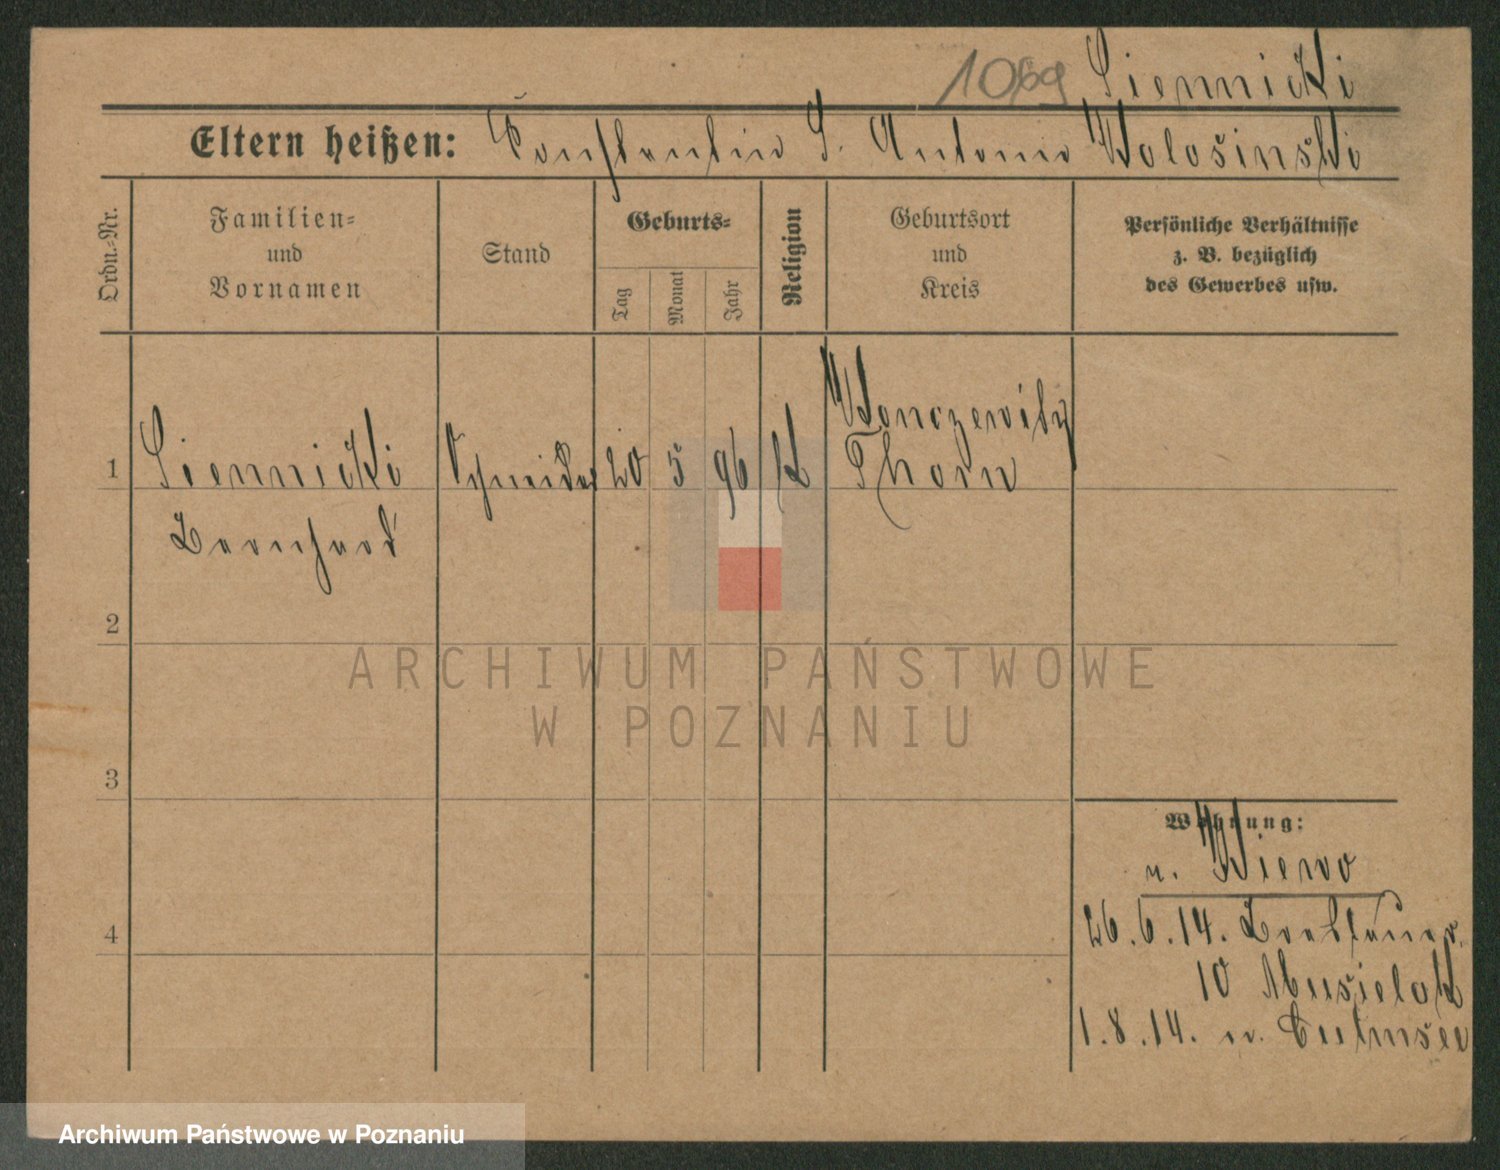 1069 Siennicki
Eltern heißen: Constantin S. Antonie Wolosinski
Ordn.-Nr.
Familien-
und
Vornamen
Stand
Geburts-
Tag
Monat
Jahr
Religion
Geburtsort
und
Kreis
Persönliche Verhältnisse
z. B. bezüglich
des Gewerbes usw.
1 Siennicki Schneider 20 5 96 K Wonczewitz
Thorn
Bernhard
2
3
4
Wohnung:
v. Wiewo
26.6.14. Breslauer.
10 Musielak
1.8.14. n. Culmsee
ARCHIWUM PAŃSTWOWE
W POZNANIU
Archiwum Państwowe w Poznaniu